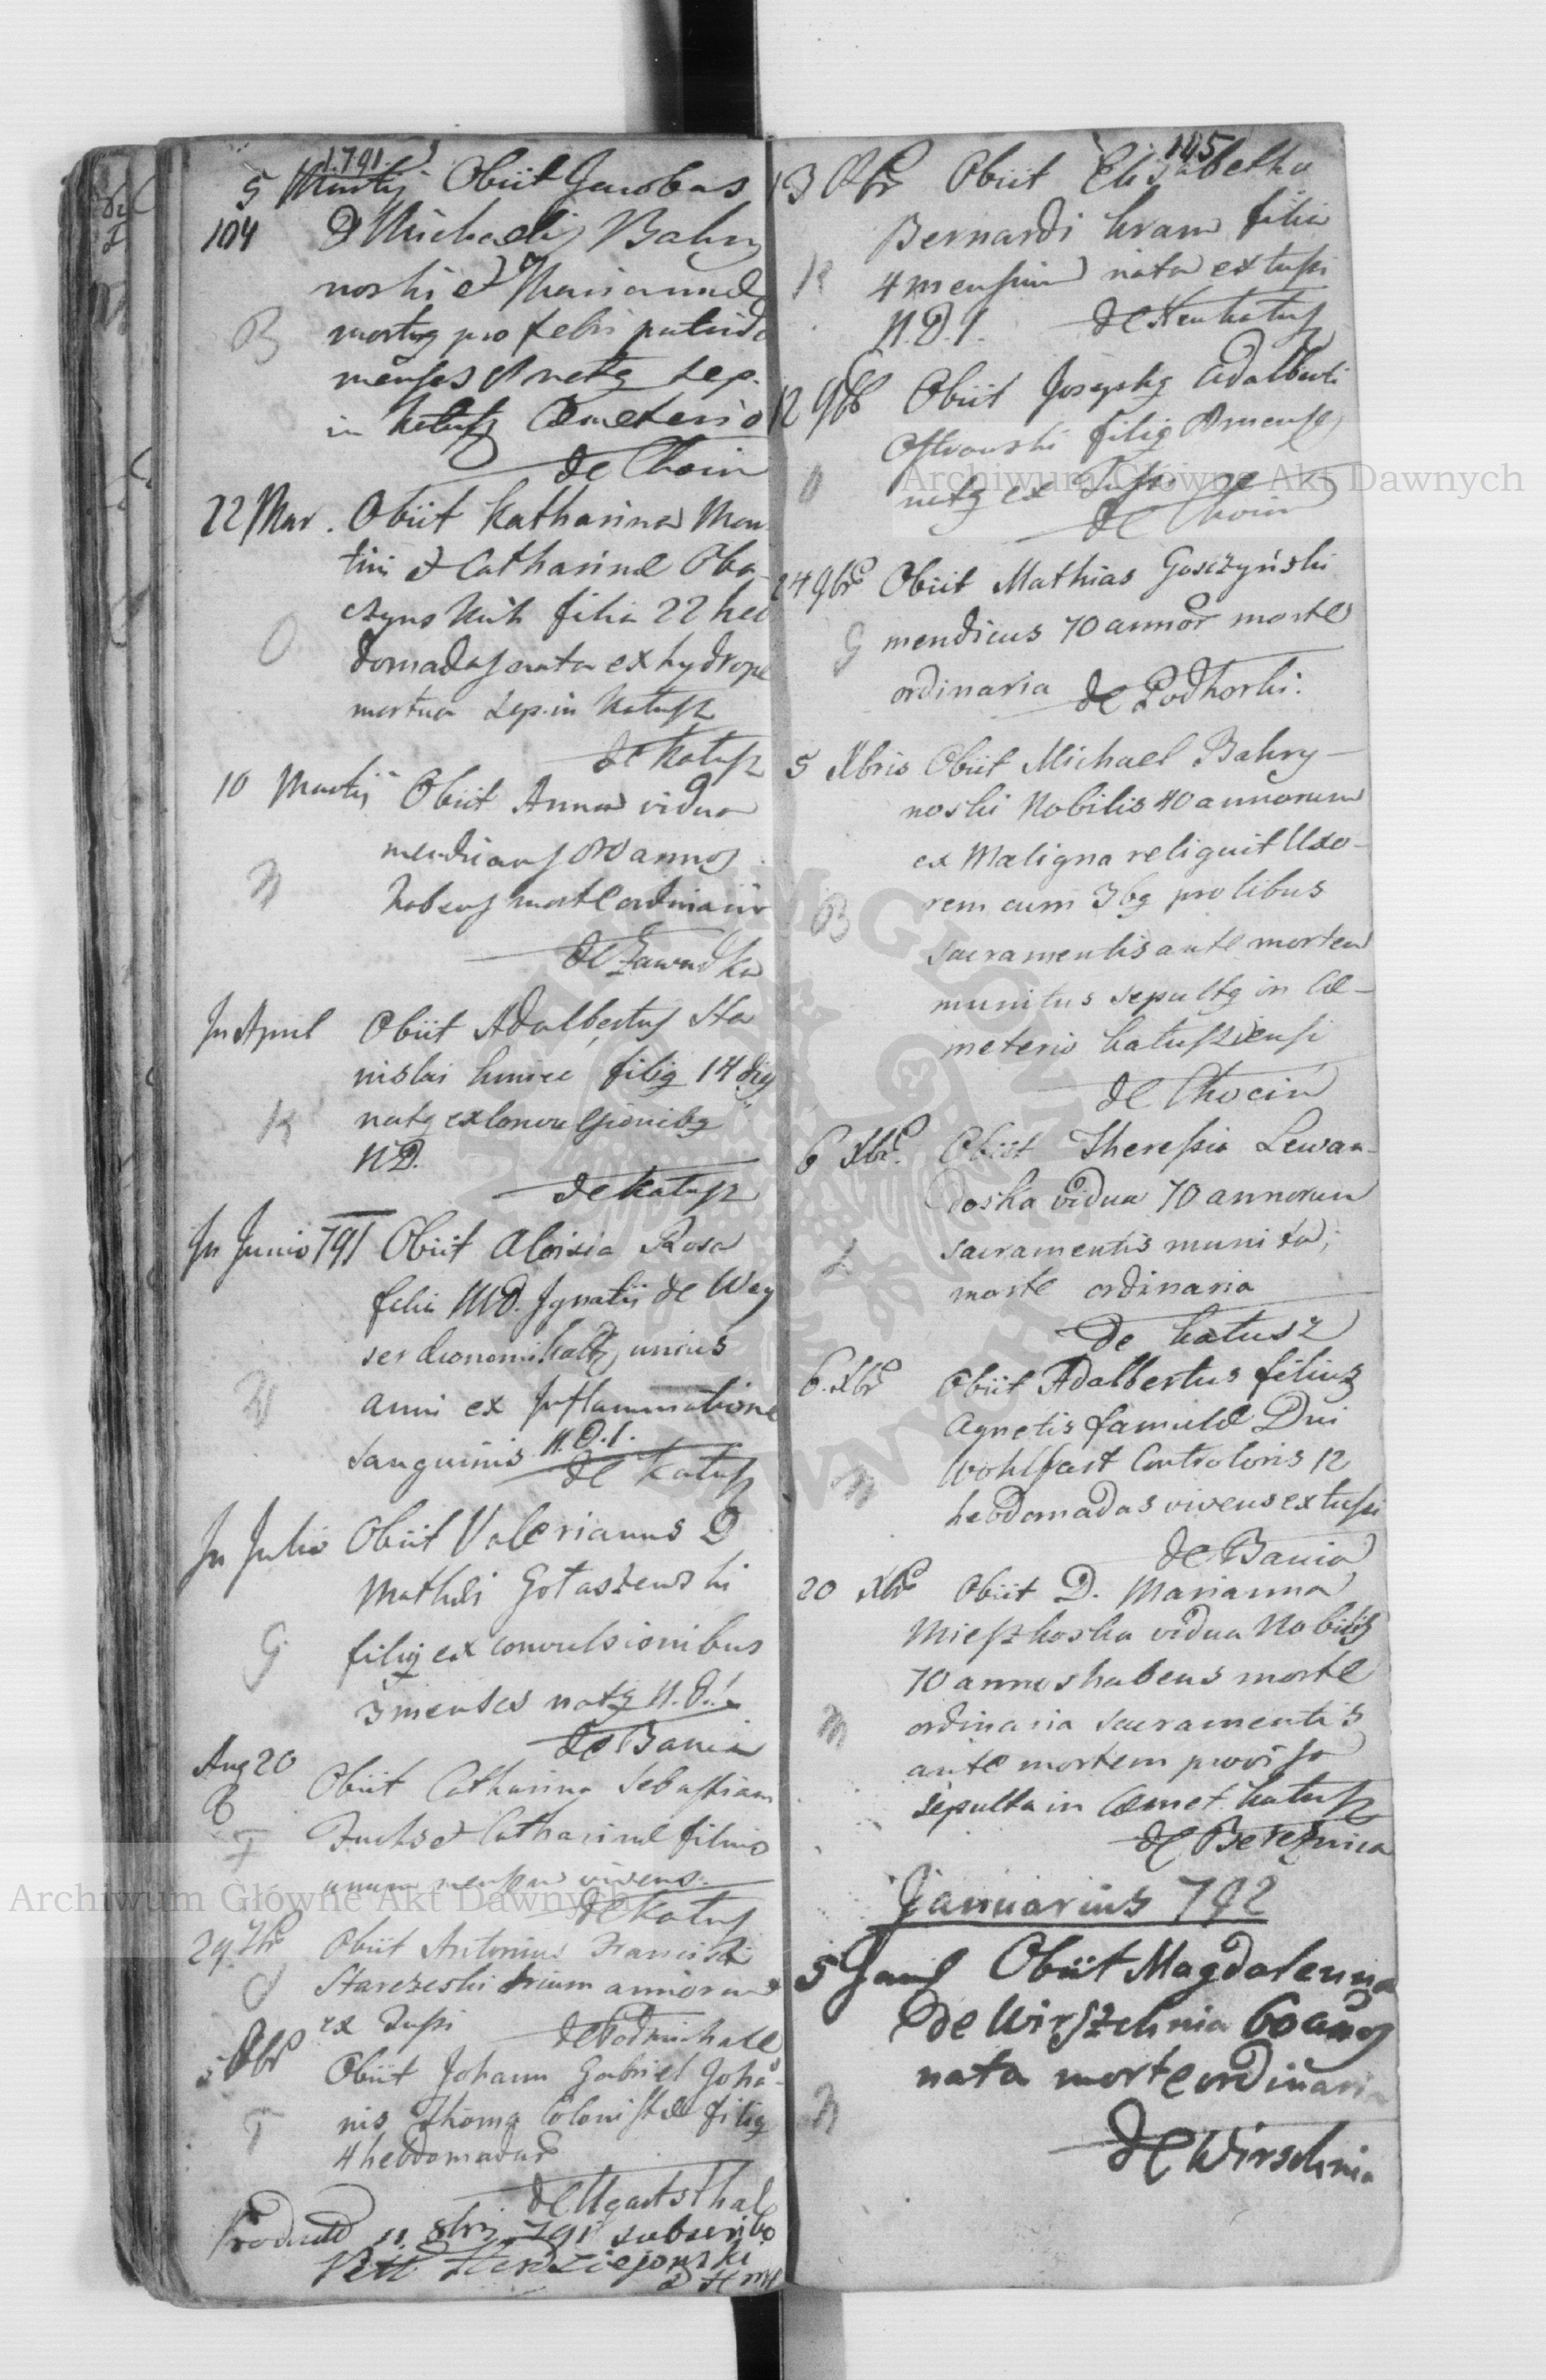 1791.
5 Martij Obiit Jacobus
104 D Michaelis Bahry
noski et Mariannae
B mortug pro febri putrida
menses natg sep.
in Katusz Cemeterio
de Chocin
22 Mar. Obiit Katharina Mar
tini et Catharinae Oba
czyns filia 22 heb
O domadas nata ex hydrope
mortua Sep. in Katusz
de Katusz
10 Martij Obiit Anna vidua
annos
habens morte ordinaria
de Zawadka
In April Obiit Adalbertus Sta
nislai filig 14 dies
K natg ex convulsionibg
N.D.
de Katusz
In Junio 791 Obiit Aloisia Rosa
filia M.D. Ignatii de Wey
ser unius
W anni ex Inflammatione
sanguinis N.D.I.
de Katusz
In Julio Obiit Valerianus D
Mathei Gotaszewski
G filig ex convulsionibus
3 menses natg N.D.I.
de Bania
Aug 20
Obiit Catharina Sebastiani
F Fuchs et Catharinae filia
unum mensem vivens.
de Katusz
29 7br Obiit Antonius Francisci
Starczeski trium annorum
ex Tussi
de Podmichale
5 8br Obiit Johann Gabriel Johā
T nis Thoma Colonistae filig
4 hebdomadar
de Ugartsthal
Producta 11 8bris 791 subscribo
105
13 8br Obiit Elisabetha
Bernardi kram filia
K 4 mensium nata ex tussi
N.D.I. de Neukatusz
12 9br Obiit Josephg Adalberti
Ostrowski filig mense
O natg ex Tussi
de Chocin
24 9br Obiit Mathias Goszczyński
G mendicus 70 annor morte
ordinaria de Podhorki.
5 Xbris Obiit Michael Bahry-
noski Nobilis 40 annorum
ex Maligna reliquit Uxo-
B rem cum 3bg prolibus
sacramentis ante mortem
munitus sepultg in Cæ-
meterio katusziensi
de Chocin
6 Xbr. Obiit Theressia Lewan-
doska vidua 70 annorum
L sacramentis munita,
morte ordinaria
de katusz
6. Xbr Obiit Adalbertus filius
Agnetis famulæ Dni
Wohlfart Controloris 12
hebdomadas vivens ex tussi
de Bania
20 Xbr Obiit D. Marianna
Mieszkoska vidua Nobilis
70 annos habens morte
M ordinaria sacramentis
ante mortem provisa
sepulta in Cæmet. katusz
de Bereznica
Januarius 792
5 Jan Obiit Magdalenna
de Wirszchnia 60 annos
nata morte ordinaria
de Wirschnia
Archiwum Główne Akt Dawnych
Archiwum Główne Akt Dawnych